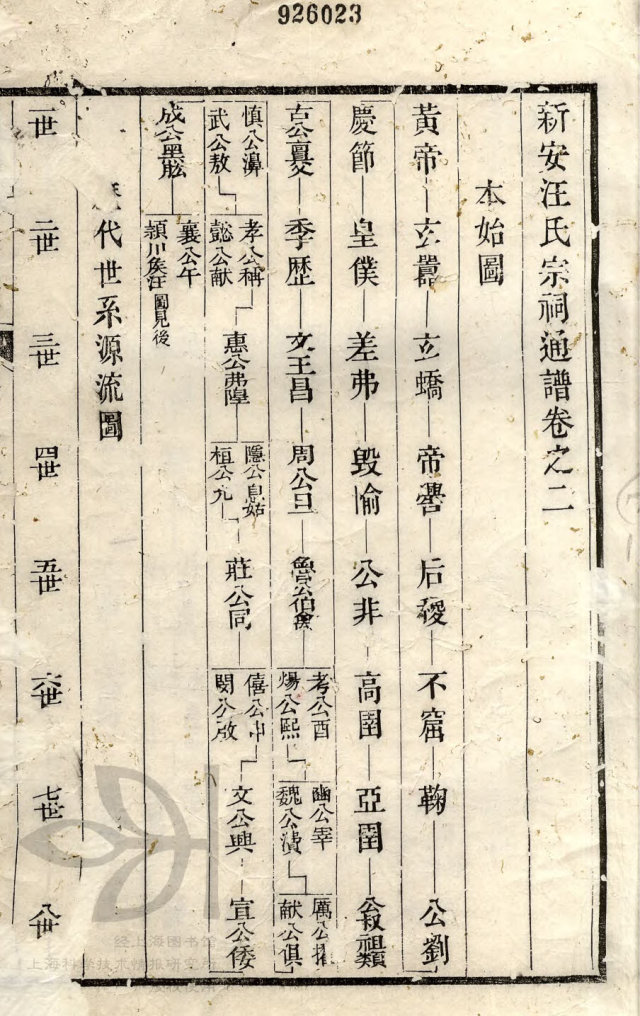 926023
新安汪氏宗祠通譜卷之二
本始圖
黃帝 玄囂 玄蟜 帝嚳 后稷 不窋 鞠 公劉
慶節 皇僕 差弗 毀愉 公非 高圉 亞圉 公叔祖類
古公亶父 季歷 文王昌 周公旦 魯公伯禽 考公酉 煬公熙 幽公宰 魏公㵒 厲公擢 献公俱
慎公濞 武公敖 孝公稱 懿公献 惠公弗隍 隱公息姑 桓公允 莊公同 僖公申 閔公啟 文公興 宣公倭
成公黑肱 襄公午 潁川矦汪 圖見後
代世系源流圖
一世 二世 三世 四世 五世 六世 七世 八世
经上海图书馆
上海科学技术情报研究所